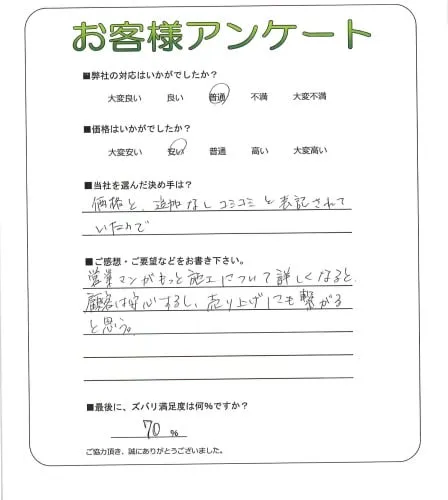 お客様アンケート
■弊社の対応はいかがでしたか?
大変良い 良い 普通 不満 大変不満
■価格はいかがでしたか?
大変安い 安い 普通 高い 大変高い
■当社を選んだ決め手は?
価格と、追加なしコミコミと表記されて
いたので
■ご感想・ご要望などをお書き下さい。
営業マンがもっと施工について詳しくなると、
顧客は安心するし、売り上げにも繋がる
と思う。
■最後に、ズバリ満足度は何%ですか?
70 %
ご協力頂き、誠にありがとうございました。